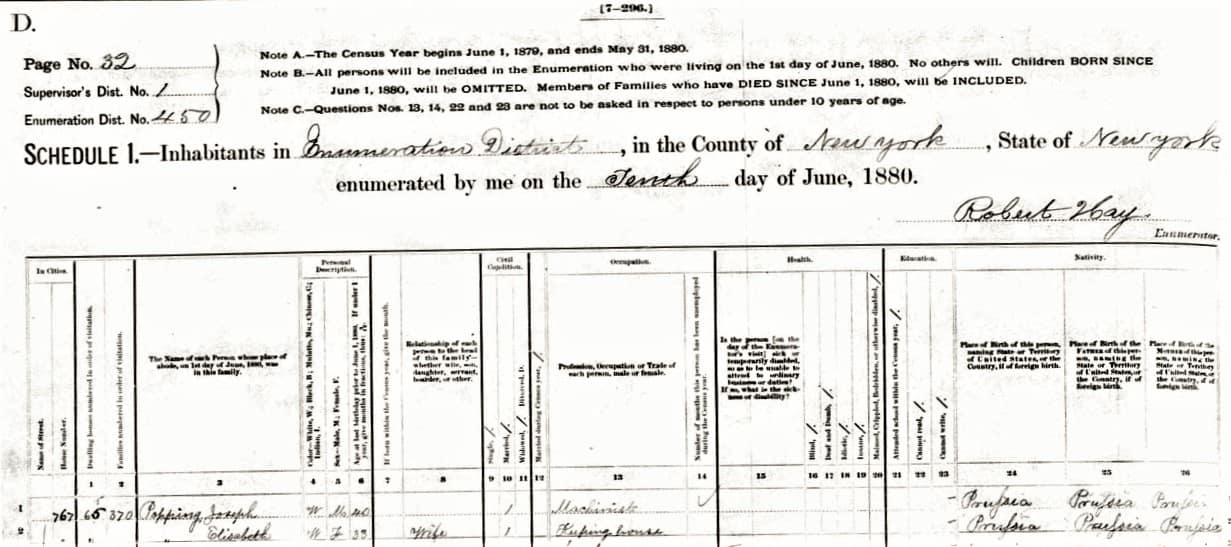 [7-296.]
D.
Page No. 32
Supervisor's Dist. No. 1
Enumeration Dist. No. 450
Note A.—The Census Year begins June 1, 1879, and ends May 31, 1880.
Note B.—All persons will be included in the Enumeration who were living on the 1st day of June, 1880. No others will. Children BORN SINCE
June 1, 1880, will be OMITTED. Members of Families who have DIED SINCE June 1, 1880, will be INCLUDED.
Note C.—Questions Nos. 13, 14, 22 and 23 are not to be asked in respect to persons under 10 years of age.
SCHEDULE 1.—Inhabitants in Enumeration District, in the County of New york, State of New york
enumerated by me on the Tenth day of June, 1880.
Robert Hay
Enumerator.
In Cities.
Name of Street.
House Number.
Dwelling houses numbered in order of visitation.
Families numbered in order of visitation.
The Name of each Person whose place of
abode, on 1st day of June, 1880, was
in this family.
Personal
Description.
Color—White, W.; Black, B.; Mulatto, Mu.; Chinese, C.;
Indian, I.
Sex—Male, M.; Female, F.
Age at last birthday prior to June 1, 1880. If under 1
year, give months in fractions, thus: 
If born within the Census year, give the month.
Relationship of each
person to the head
of this family—
whether wife, son,
daughter, servant,
boarder, or other.
Civil
Condition.
Single, /.
Married, /.
Widowed, /. Divorced, D.
Married during Census year, /.
Occupation.
Profession, Occupation or Trade of
each person, male or female.
Number of months this person has been unemployed
during the Census year.
Health.
Is the person [on the
day of the Enumera-
tor's visit] sick or
temporarily disabled,
so as to be unable to
attend to ordinary
business or duties?
If so, what is the sick-
ness or disability?
Blind, /.
Deaf and Dumb, /.
Idiotic, /.
Insane, /.
Maimed, Crippled, Bedridden, or otherwise disabled, /.
Education.
Attended school within the Census year, /.
Cannot read, /.
Cannot write, /.
Nativity.
Place of Birth of this person,
naming State or Territory
of United States, or the
Country, if of foreign birth.
Place of Birth of the
FATHER of this per-
son, naming the
State or Territory
of United States, or
the Country, if of
foreign birth.
Place of Birth of the
MOTHER of this per-
son, naming the
State or Territory
of United States, or
the Country, if of
foreign birth.
1 2 3 4 5 6 7 8 9 10 11 12 13 14 15 16 17 18 19 20 21 22 23 24 25 26
1 767 65 370 Popping, Joseph W M 40 / Machinist Prussia Prussia Prussia
2 " " " Elisabeth W F 33 Wife / Keeping house Prussia Prussia Prussia